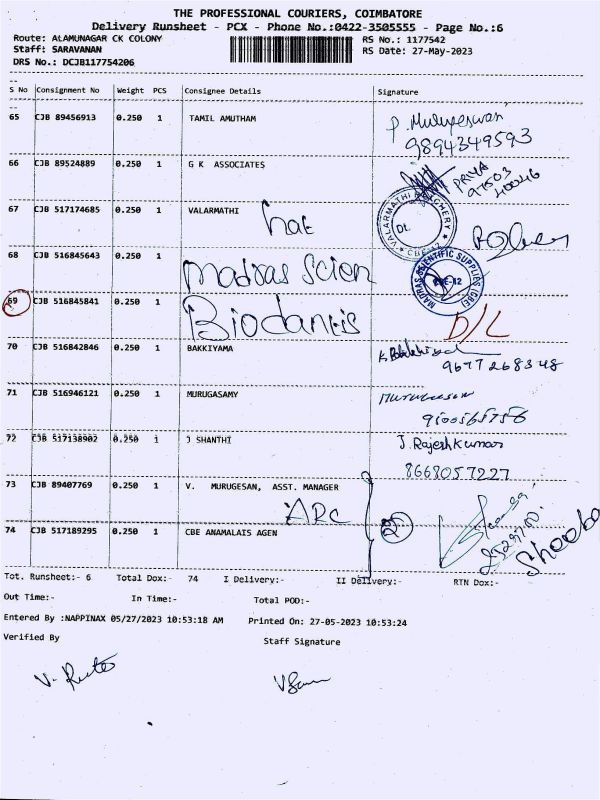 THE PROFESSIONAL COURIERS, COIMBATORE
Delivery Runsheet - PCX - Phone No.:0422-3505555 - Page No.:6
Route: ALAMUNAGAR CK COLONY RS No.: 1177542
Staff: SARAVANAN RS Date: 27-May-2023
DRS No.: DCJB117754206
S No Consignment No Weight PCS Consignee Details Signature
65 CJB 89456913 0.250 1 TAMIL AMUTHAM
9894349593
66 CJB 89524889 0.250 1 G K ASSOCIATES
PRIYA
67 CJB 517174685 0.250 1 VALARMATHI
68 CJB 516845643 0.250 1 Madras Scien
MADRAS SCIENTIFIC SUPPLIES
69 CJB 516845841 0.250 1 D/L
70 CJB 516842846 0.250 1 BAKKIYAMA
9677268348
71 CJB 516946121 0.250 1 MURUGASAMY
72 CJB 517138902 0.250 1 J SHANTHI J. Rajesh Kumar
8668057227
73 CJB 89407769 0.250 1 V. MURUGESAN, ASST. MANAGER
ARC
74 CJB 517189295 0.250 1 CBE ANAMALAIS AGEN
Shooba
Tot. Runsheet:- 6 Total Dox:- 74 I Delivery:- II Delivery:- RTN Dox:-
Out Time:- In Time:- Total POD:-
Entered By :NAPPINAX 05/27/2023 10:53:18 AM Printed On: 27-05-2023 10:53:24
Verified By Staff Signature